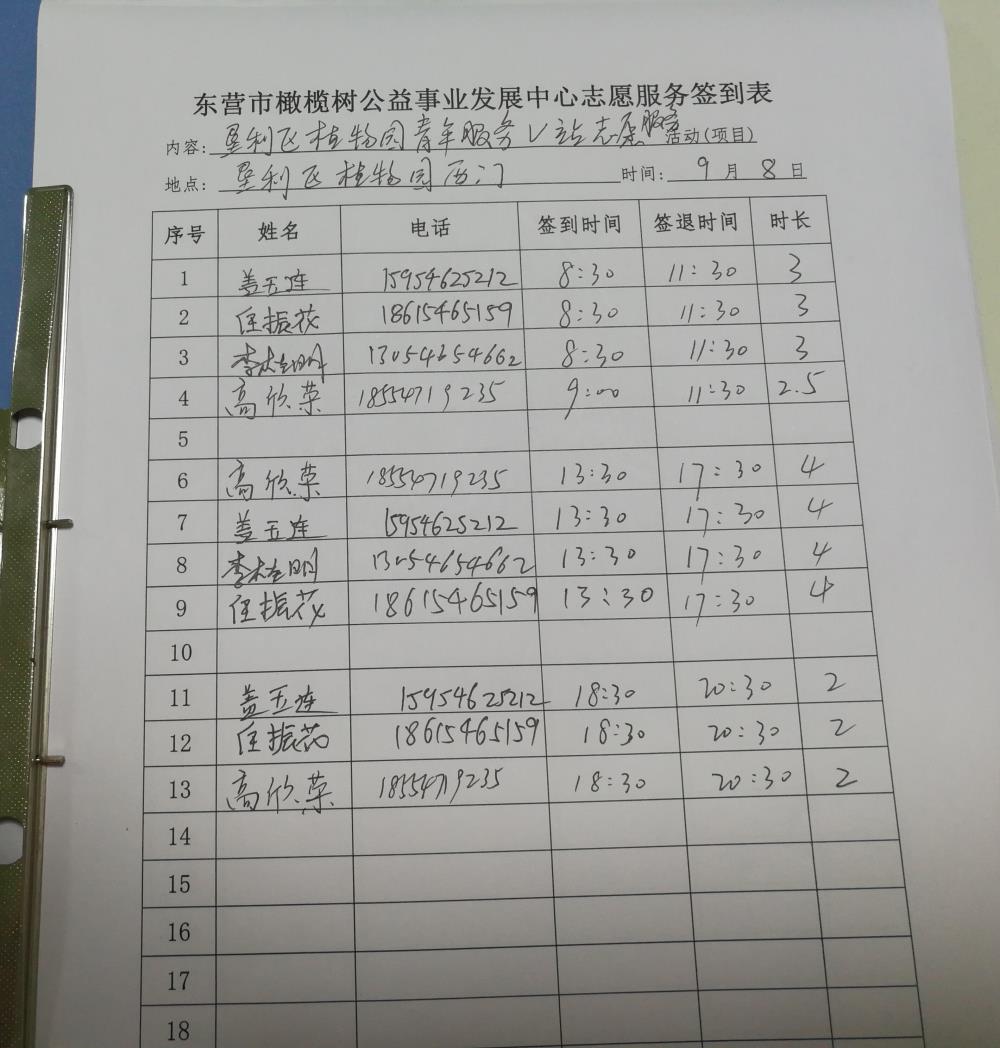 东营市橄榄树公益事业发展中心志愿服务签到表
内容: 垦利区植物园青年服务V站志愿服务 活动(项目)
地点: 垦利区植物园西门 时间: 9 月 8 日
序号 姓名 电话 签到时间 签退时间 时长
1 盖玉连 15954625212 8:30 11:30 3
2 任振花 18615465159 8:30 11:30 3
3 13054654662 8:30 11:30 3
4 高欣荣 18554719235 9:00 11:30 2.5
5
6 高欣荣 18554719235 13:30 17:30 4
7 盖玉连 15954625212 13:30 17:30 4
8 13054654662 13:30 17:30 4
9 任振花 18615465159 13:30 17:30 4
10
11 盖玉连 15954625212 18:30 20:30 2
12 任振花 18615465159 18:30 20:30 2
13 高欣荣 18554719235 18:30 20:30 2
14
15
16
17
18